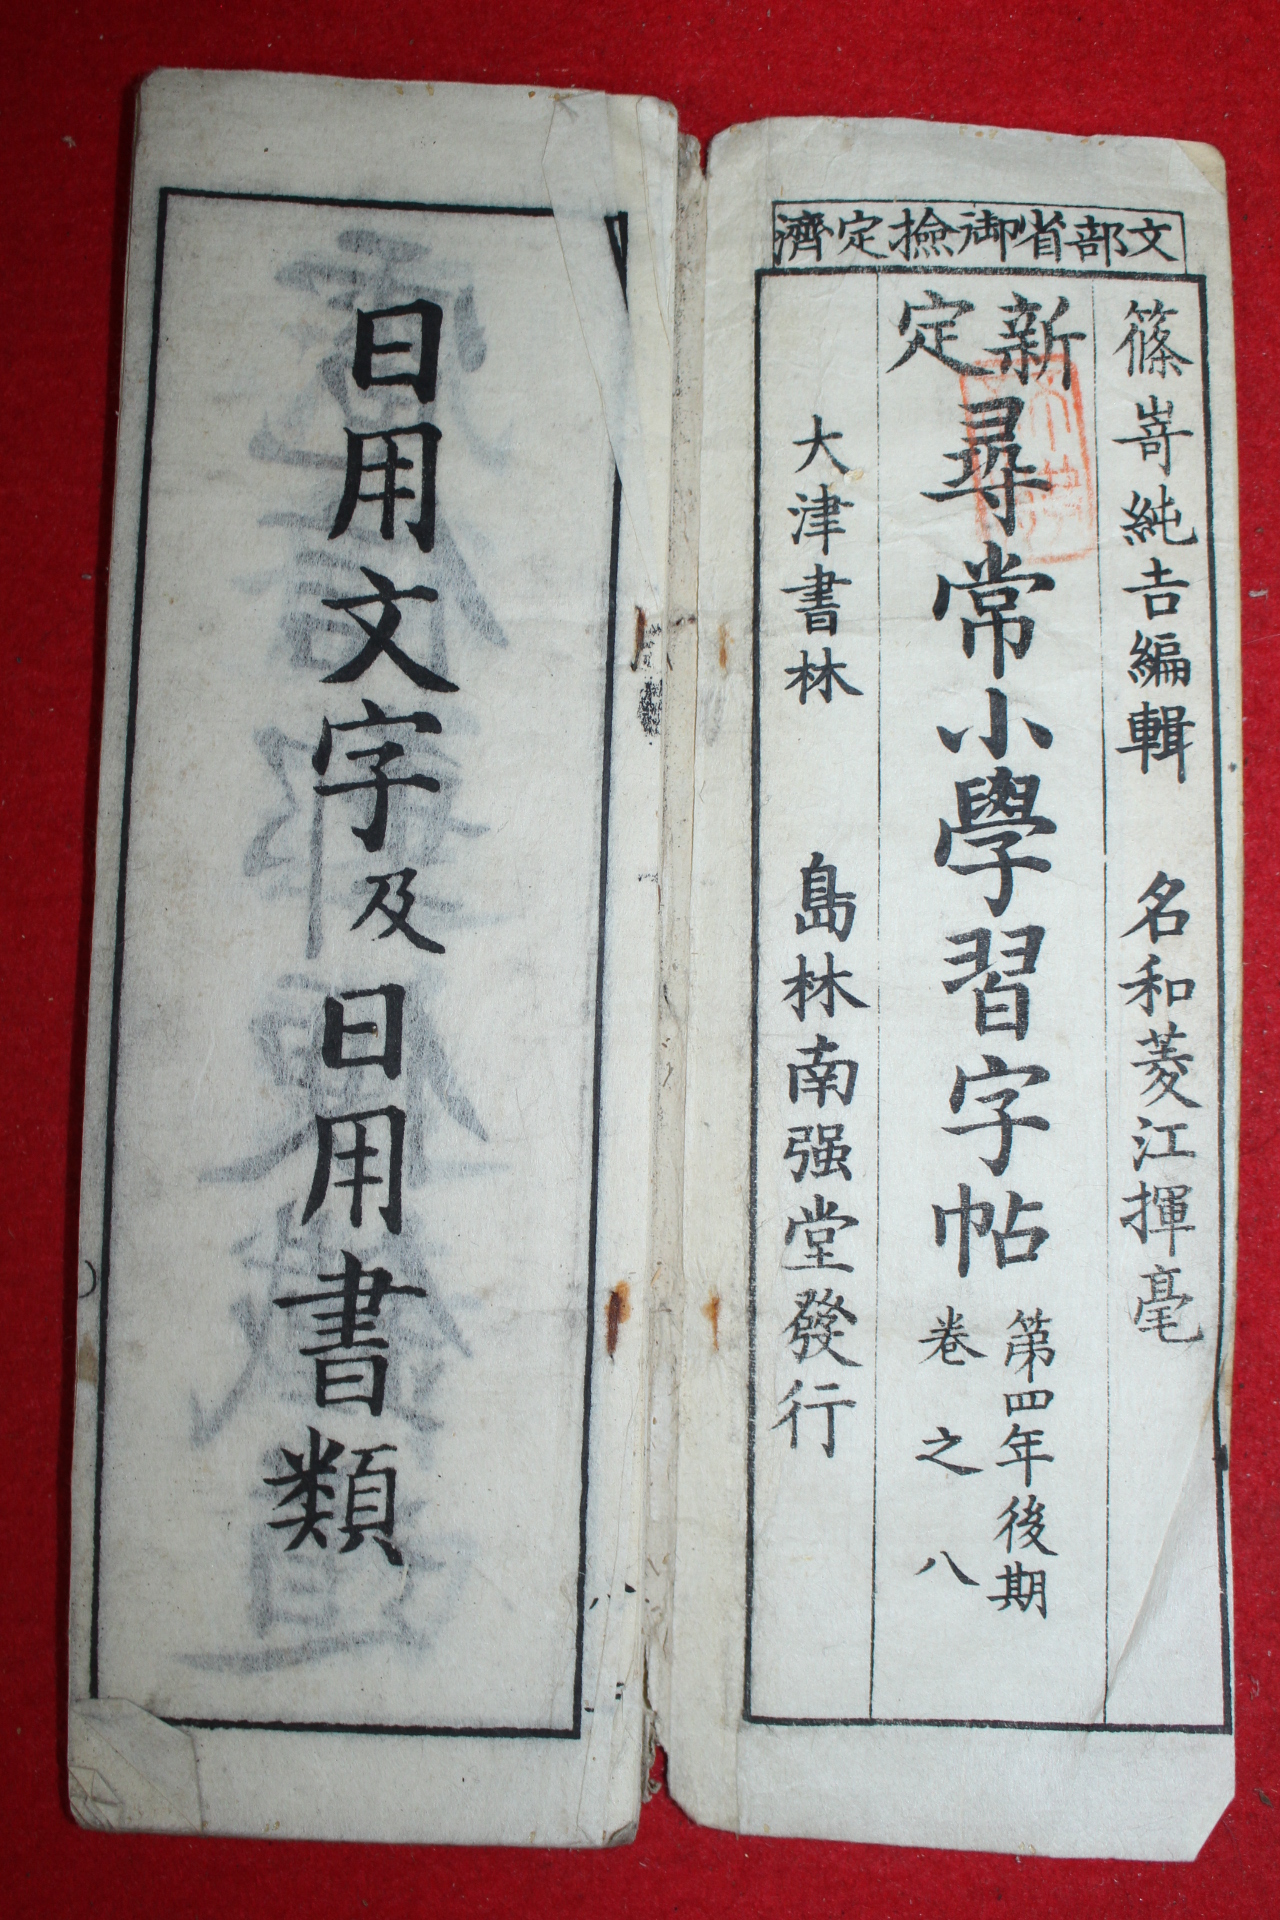 文部省御撿定濟
篠嵜純吉編輯 名和菱江揮毫
新定尋常小學習字帖 第四年後期 卷之八
大津書林 島林南强堂發行
日用文字及日用書類